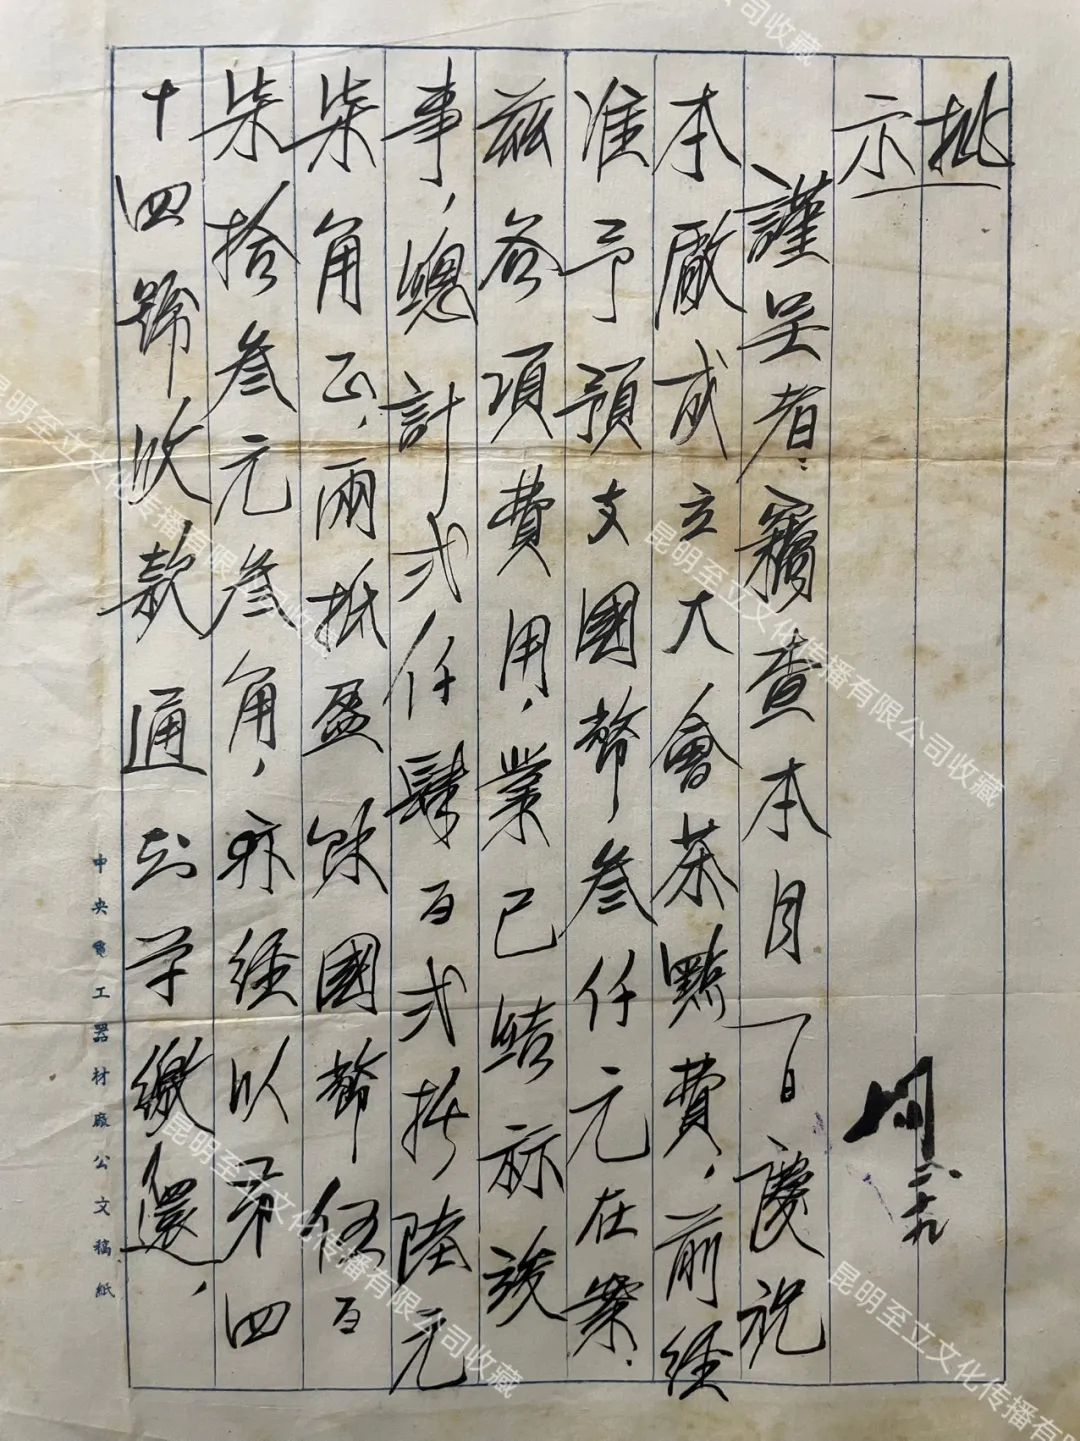 批
示
謹呈者：竊查本月一日慶祝
本廠成立大會茶點費，前經
准予預支國幣叁仟元在案，
茲各項費用，業已結竣
事，總計弍仟肆百弍拾陸元
柒角正，兩抵盈餘國幣伍百
柒拾叁元叁角，亦經以第四
十四號收款通知單繳還，
中央電工器材廠公文稿紙
昆明至立文化传播有限公司收藏
昆明至立文化传播有限公司收藏
昆明至立文化传播有限公司收藏
昆明至立文化传播有限公司收藏
公司收藏